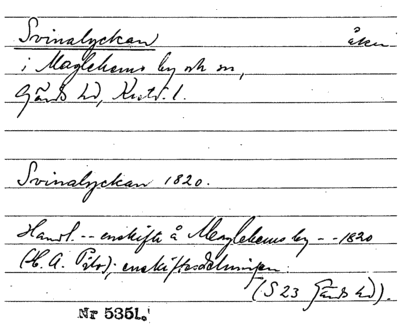 Svinalyckan åker
i Maglehems by och sn,
Gärds hd, Krist. l.
Svinalyckan 1820.
Handl. -- enskifte å Maglehems by -- 1820
(H. A. ); enskiftesdelningen.
(S 23 Gärds hd).
Nr 5351.